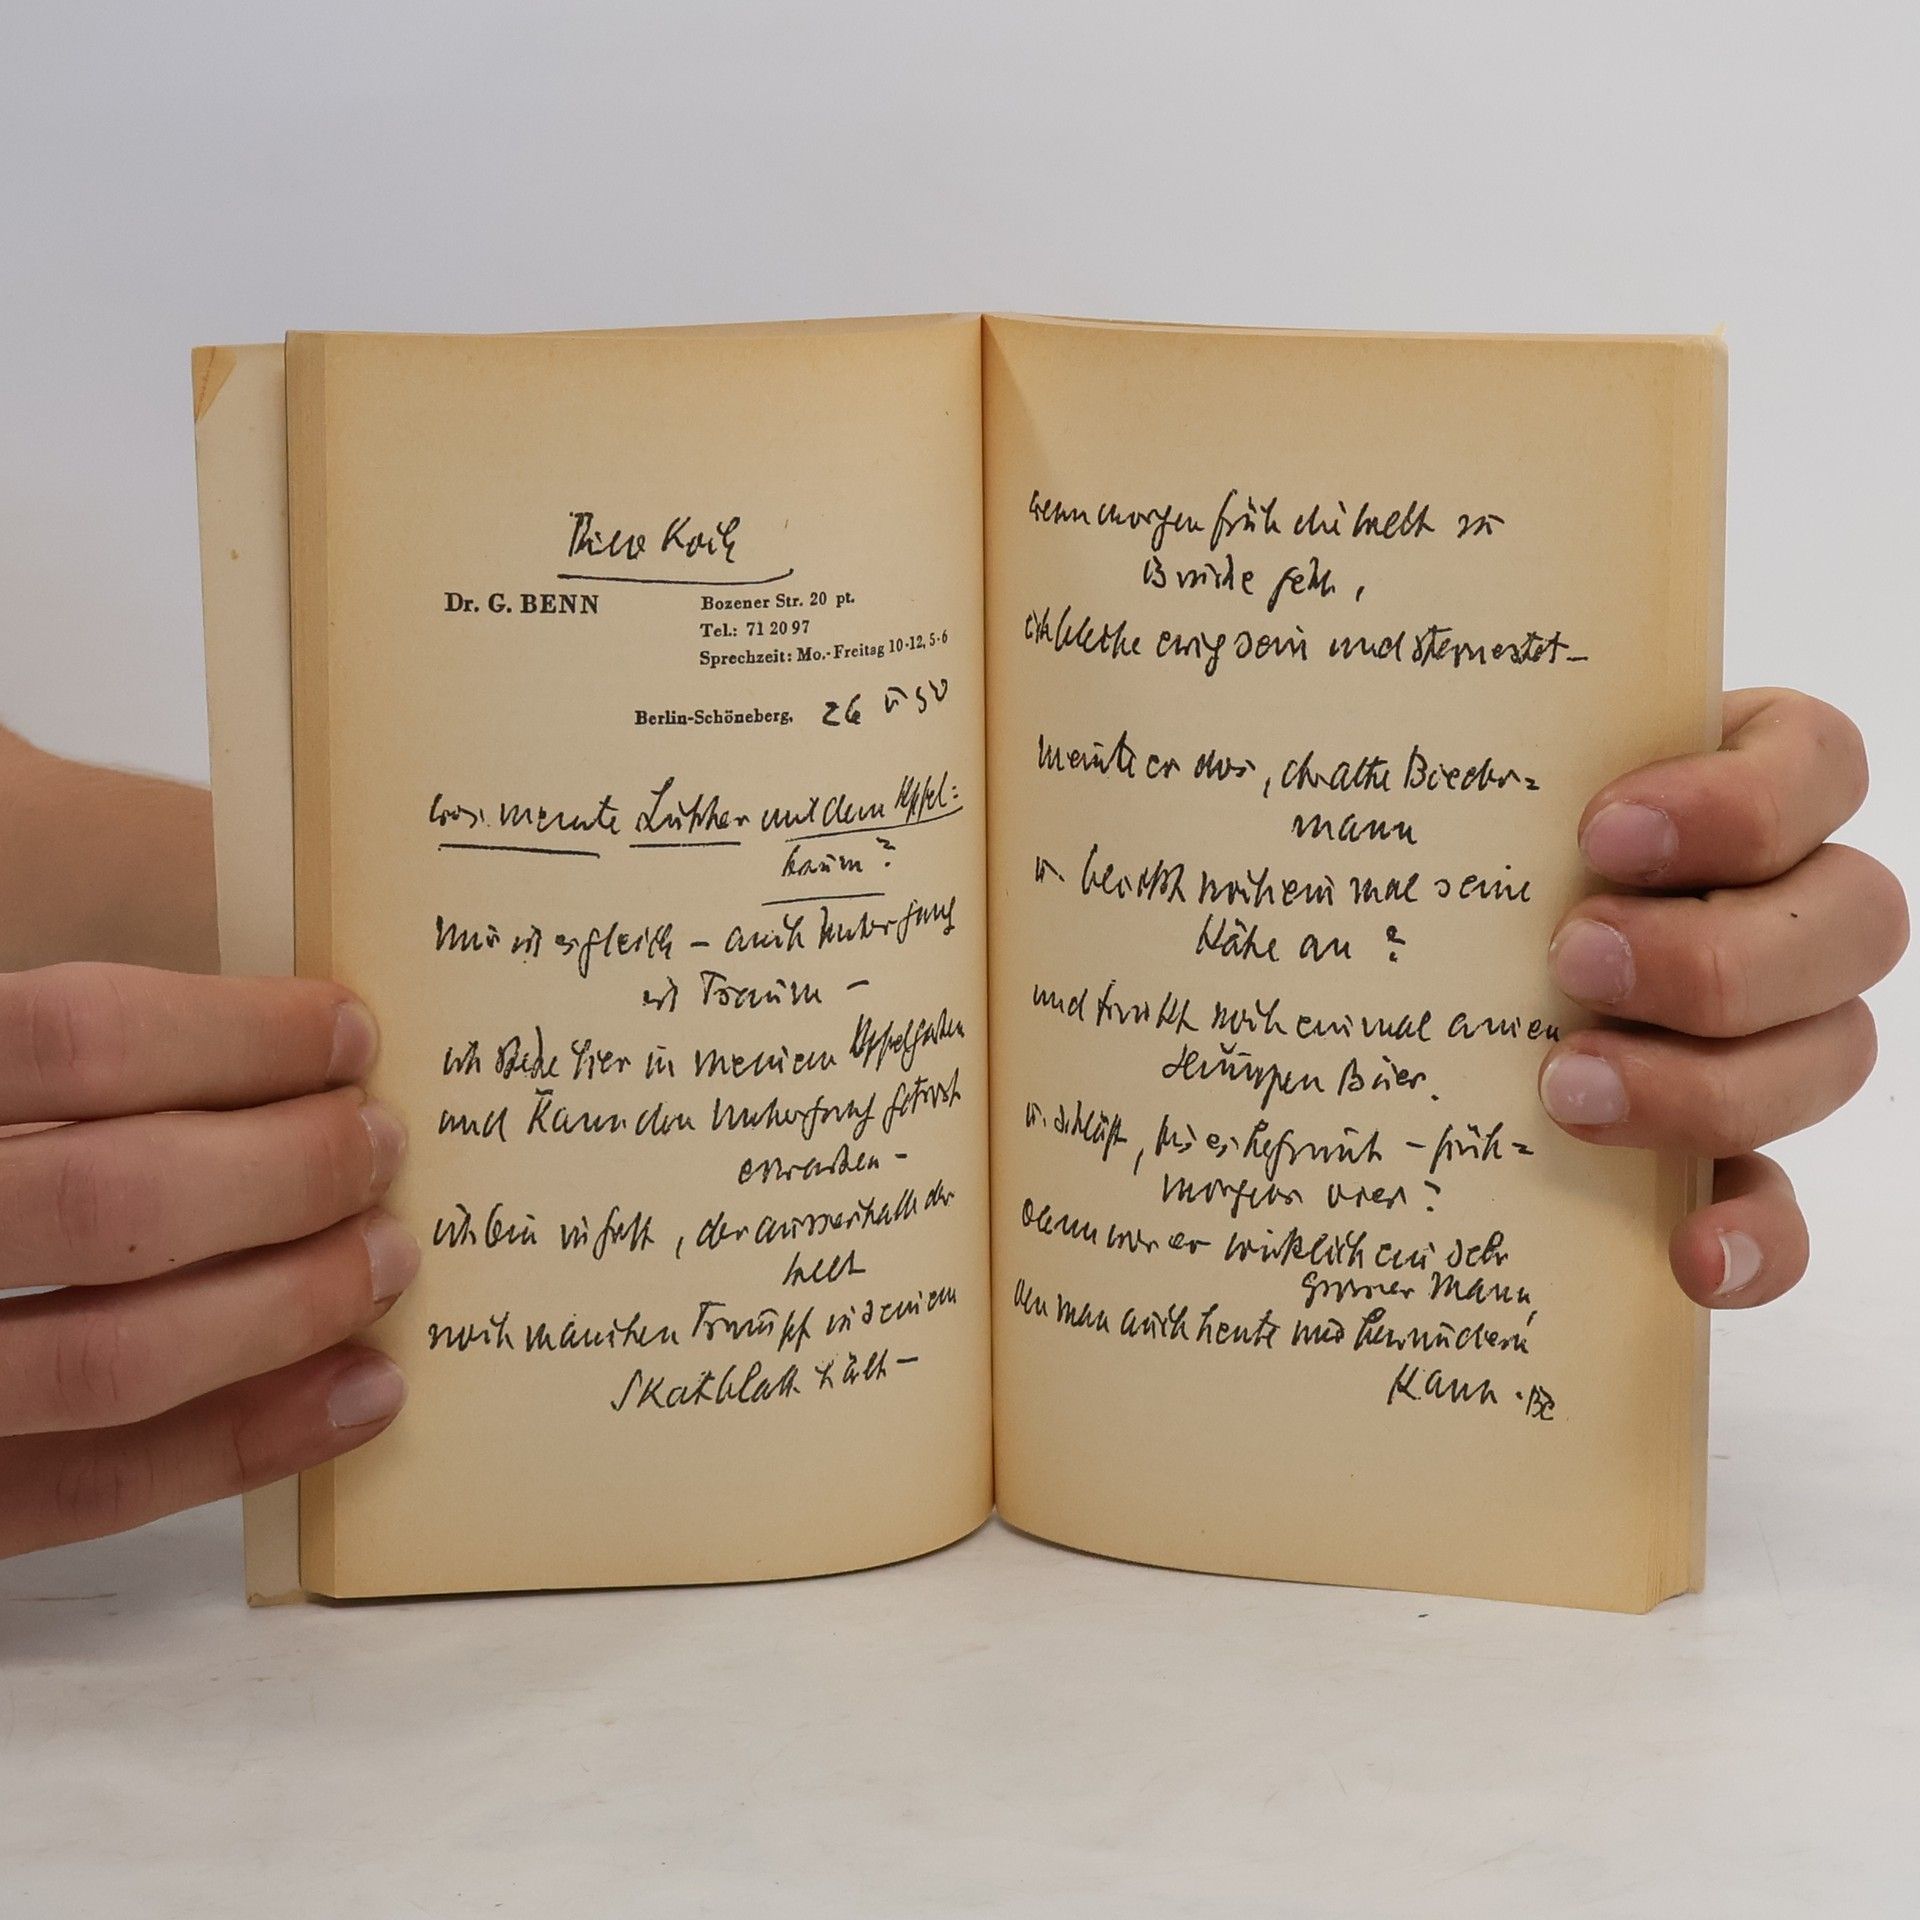 Thilo Koch
Dr. G. BENN
Bozener Str. 20 pt.
Tel.: 71 20 97
Sprechzeit: Mo.-Freitag 10-12, 5-6
Berlin-Schöneberg, 26 V 50
was meinte Luther mit dem Apfel=
baum?
Mir ist es gleich – auch Untergang
ist Traum –
ich stehe hier in meinem Apfelgarten
und kann den Untergang getrost
erwarten –
ich bin in Gott, der ausserhalb der
Welt
noch manchen Trumpf in seinem
Skatblatt hält –
wenn morgen früh die Welt zu
Bruche geht,
ich bleibe ewig sein und sternestet –
Meinte er das, der alte Bieder=
mann
u. blickt noch einmal seine
Käte an?
und trinkt noch einmal einen
Humpen Bier.
u. schläft, bis es beginnt – früh=
morgens vier?
Dann war er wirklich ein sehr
grosser Mann,
den man auch heute nur bewundern
kann. Be